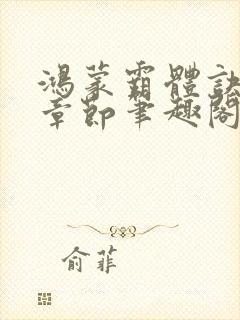 鴻蒙霸體訣
章節筆趣閣
俞菲